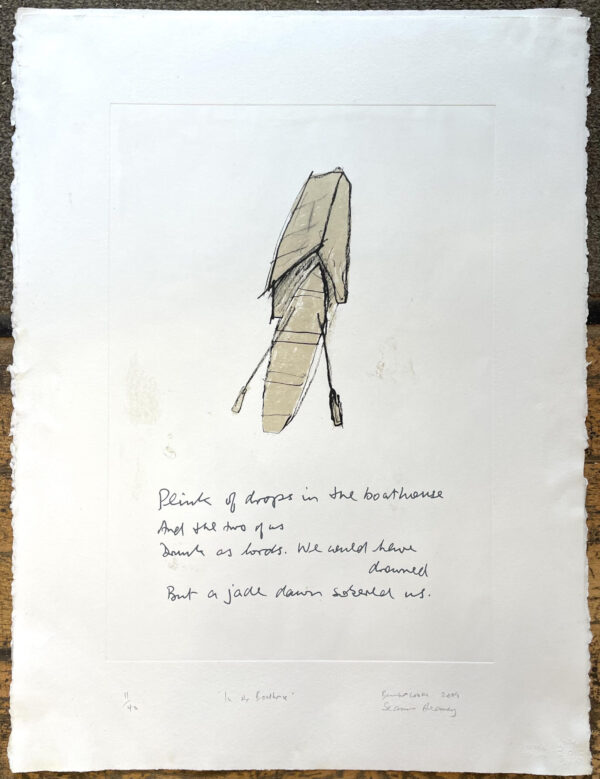 Plink of drops in the boathouse
And the two of us
Drunk as lords. We would have
drowned
But a jade dawn sobered us.
11/40
'In the Boathouse'
2009
Seamus Heaney